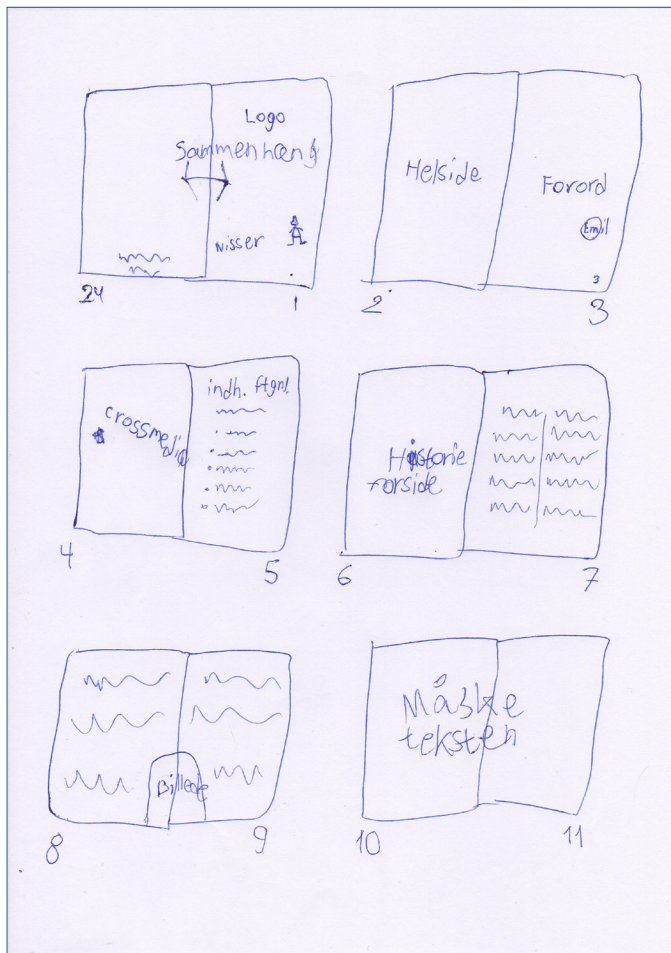 Logo
Sammenhæng
Nisser
24
1
Helside
Forord
Emil
3
2
3
crossmedia
indh. ftgnl.
4
5
Historie
forside
6
7
Billede
8
9
Måske
teksten
10
11